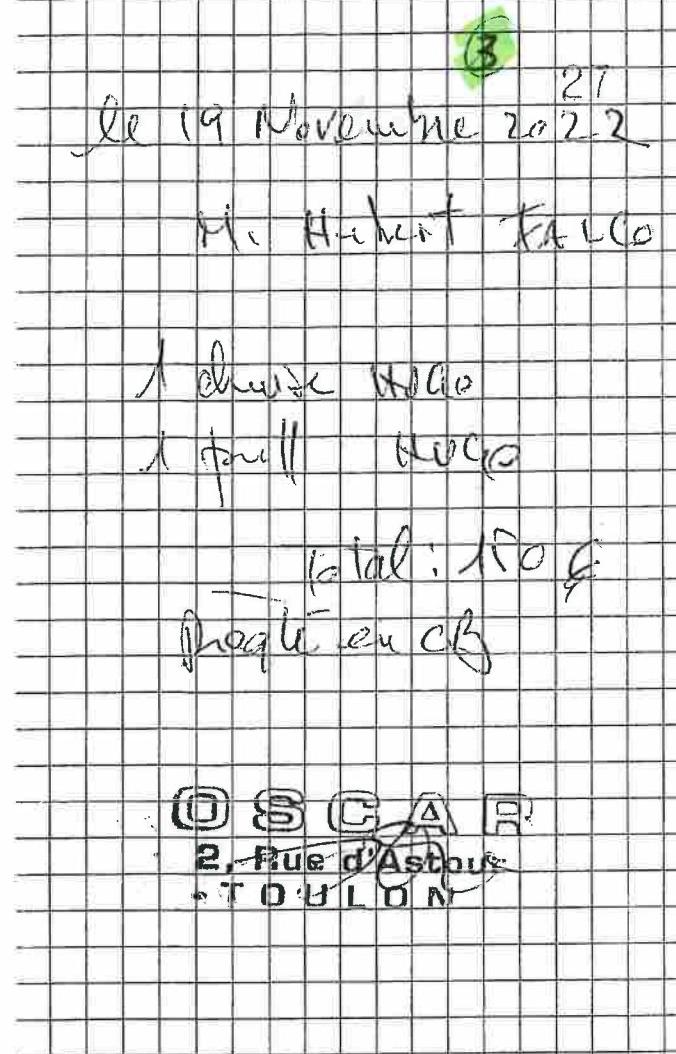 3
21
le 19 Novembre 2022
M. Hubert FALCO
1 chemise HUGO
1 pull HUGO
total : 150 €
Réglé en CB
OSCAR
2, Rue d'Astour
-TOULON